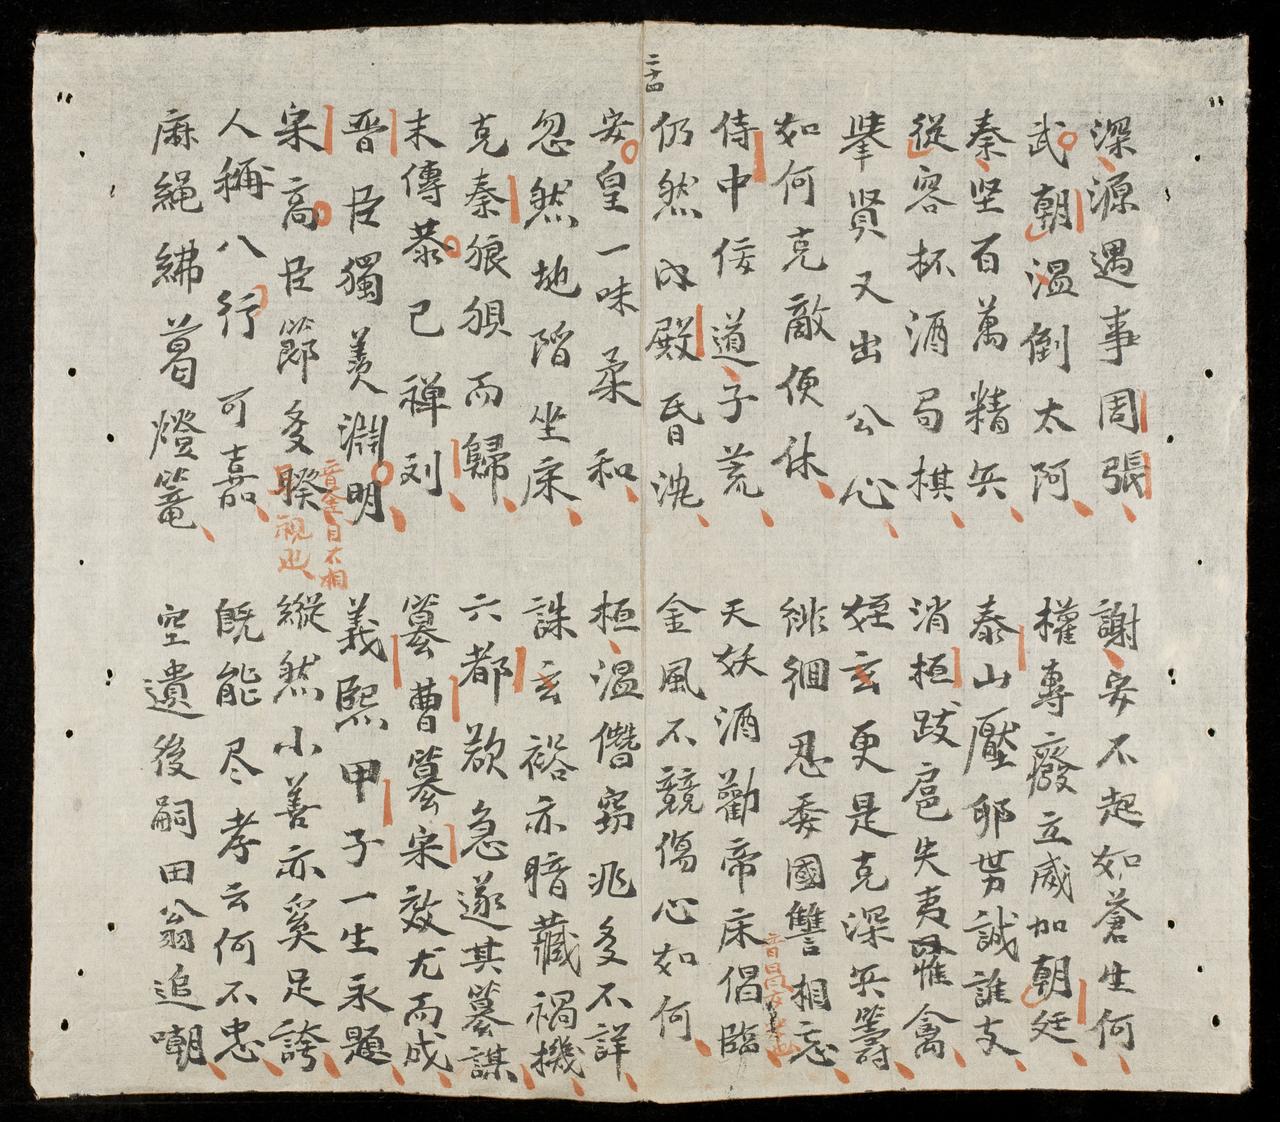 二十四
深源遇事周張
謝安不起如蒼生何
武朝溫倒太阿
權專廢立威加朝廷
秦坚百萬精兵
泰山壓卵势誠誰支
從容杯酒局棋
消桓跋扈失夷惟禽
擧贤又出公心
姪玄更是克深兵籌
如何克敵便休
徘徊忍委國讐相忘
侍中佞道子荒
天妖酒勸帝床倡臨
音昌
仍然内殿昏沈
金風不競傷心如何
安皇一味柔和
桓溫僭竊兆多不詳
忽然地陷坐床
誅玄裕亦暗藏禍機
克秦狼狽而歸
六都欲急遂其篡謀
末傳恭已禅刘
篡曹篡宋效尤而成
晋臣獨羡淵明
義熙甲子一生永題
宋高臣節多睽
音奎目不相視也
縱然小善亦奚足誇
人稱八行可嘉
既能尽孝云何不忠
麻繩葛燈篭
空遺後嗣田翁追嘲